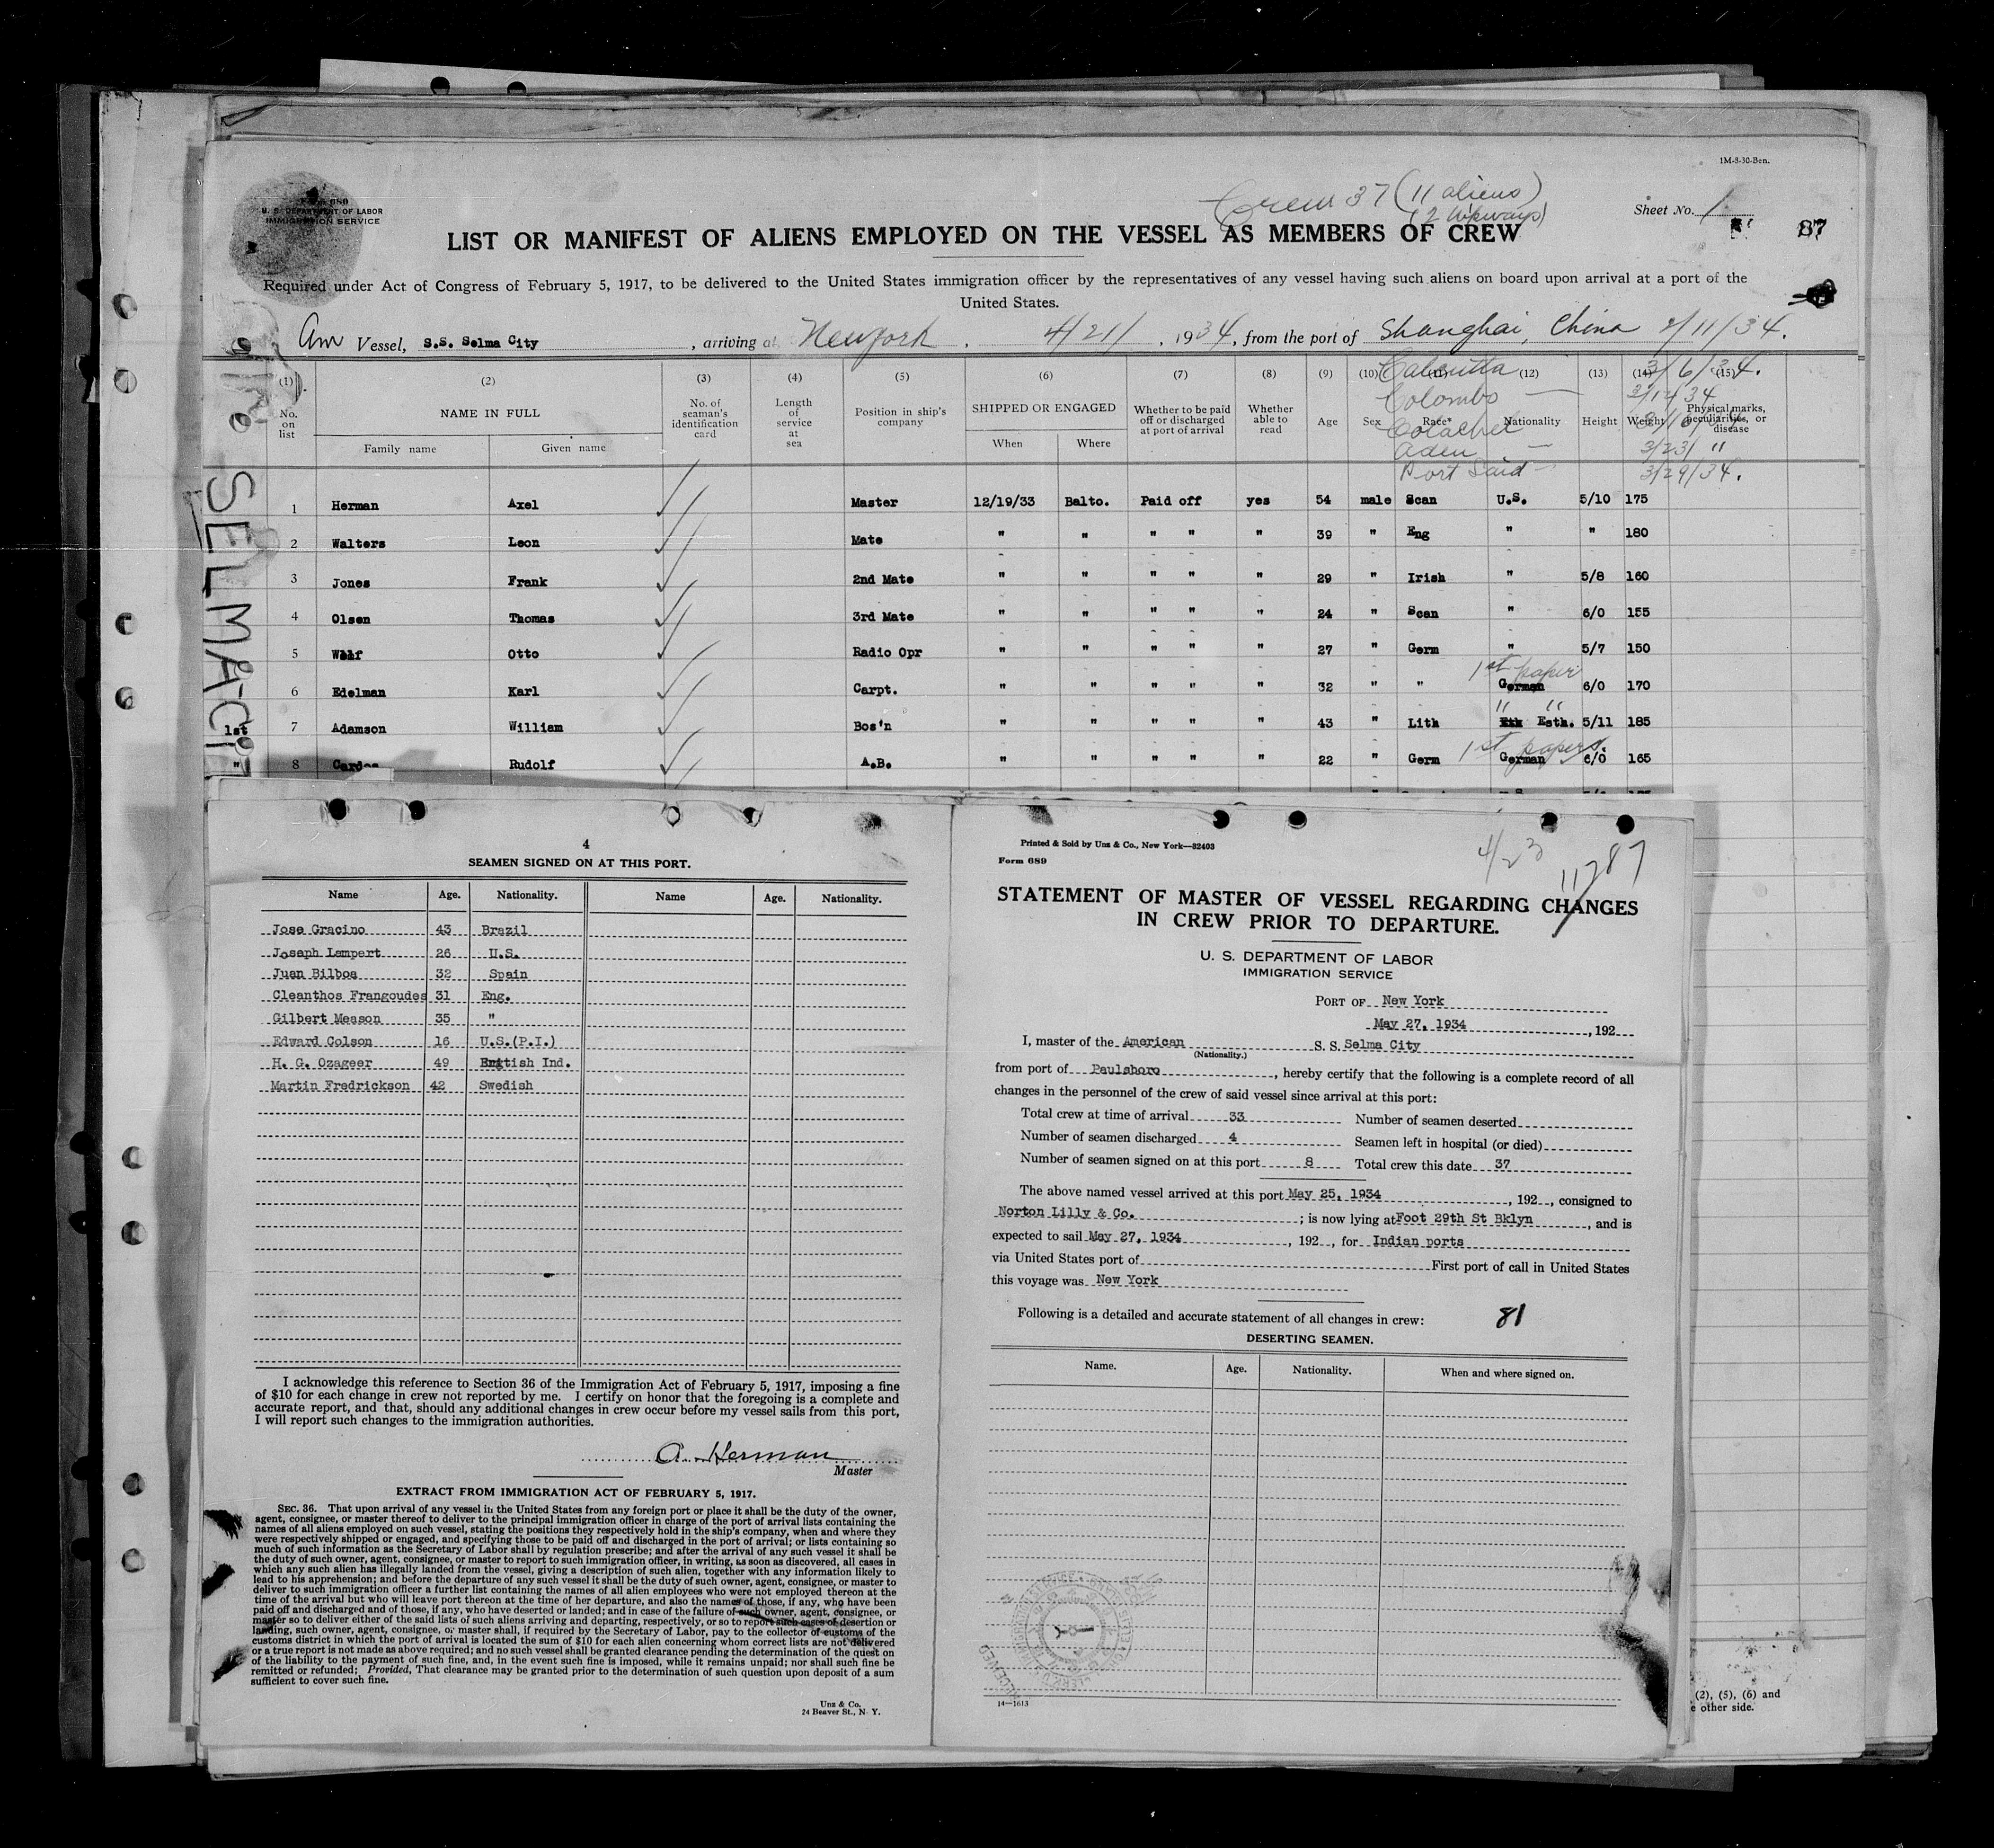 1M-8-30-Ben.
Crew 37 (11 aliens)
(2 Wkways)
Sheet No. 1
87
U. S. DEPARTMENT OF LABOR
IMMIGRATION SERVICE
LIST OR MANIFEST OF ALIENS EMPLOYED ON THE VESSEL AS MEMBERS OF CREW
Required under Act of Congress of February 5, 1917, to be delivered to the United States immigration officer by the representatives of any vessel having such aliens on board upon arrival at a port of the
United States.
Am Vessel, S.S. Selma City, arriving at New York, 4/21/, 1934, from the port of Shanghai, China 2/11/34.
Calcutta 3/6/34.
Colombo 3/12/34
Colachel
Aden 3/23/ "
Port Said 3/29/34.
(1) (2) (3) (4) (5) (6) (7) (8) (9) (10) (11) (12) (13) (14) (15)
No. on list NAME IN FULL Family name Given name No. of seaman's identification card Length of service at sea Position in ship's company SHIPPED OR ENGAGED When Where Whether to be paid off or discharged at port of arrival Whether able to read Age Sex Race* Nationality Height Weight Physical marks, peculiarities, or disease
SELMA CITY
1 Herman Axel Master 12/19/33 Balto. Paid off yes 54 male Scan U.S. 5/10 175
2 Walters Leon Mate " " " " " 39 " Eng " " 180
3 Jones Frank 2nd Mate " " " " " 29 " Irish " 5/8 160
4 Olsen Thomas 3rd Mate " " " " " 24 " Scan " 6/0 155
5 Wolf Otto Radio Opr " " " " " 27 " Germ " 5/7 150
1st paper
6 Edelman Karl Carpt. " " " " " 32 " " German 6/0 170
" "
1st 7 Adamson William Bos'n " " " " " 43 " Lith Esth. 5/11 185
1st papers
" 8 Cardes Rudolf A.B. " " " " " 22 " Germ German 6/0 165
4
SEAMEN SIGNED ON AT THIS PORT.
Name Age. Nationality. Name Age. Nationality.
Jose Gracino 43 Brazil
Joseph Lampert 26 U.S.
Juan Bilboa 32 Spain
Cleanthos Frangoudes 31 Eng.
Gilbert Meason 35 "
Edward Colson 16 U.S.(P.I.)
H. G. Ozageer 49 British Ind.
Martin Fredrickson 42 Swedish
I acknowledge this reference to Section 36 of the Immigration Act of February 5, 1917, imposing a fine
of $10 for each change in crew not reported by me. I certify on honor that the foregoing is a complete and
accurate report, and that, should any additional changes in crew occur before my vessel sails from this port,
I will report such changes to the immigration authorities.
A. Herman
Master
EXTRACT FROM IMMIGRATION ACT OF FEBRUARY 5, 1917.
SEC. 36. That upon arrival of any vessel in the United States from any foreign port or place it shall be the duty of the owner,
agent, consignee, or master thereof to deliver to the principal immigration officer in charge of the port of arrival lists containing the
names of all aliens employed on such vessel, stating the positions they respectively hold in the ship's company, when and where they
were respectively shipped or engaged, and specifying those to be paid off and discharged in the port of arrival; or lists containing so
much of such information as the Secretary of Labor shall by regulation prescribe; and after the arrival of any such vessel it shall be
the duty of such owner, agent, consignee, or master to report to such immigration officer, in writing, as soon as discovered, all cases in
which any such alien has illegally landed from the vessel, giving a description of such alien, together with any information likely to
lead to his apprehension; and before the departure of any such vessel it shall be the duty of such owner, agent, consignee, or master to
deliver to such immigration officer a further list containing the names of all alien employees who were not employed thereon at the
time of the arrival but who will leave port thereon at the time of her departure, and also the names of those, if any, who have been
paid off and discharged and of those, if any, who have deserted or landed; and in case of the failure of such owner, agent, consignee, or
master so to deliver either of the said lists of such aliens arriving and departing, respectively, or so to report such cases of desertion or
landing, such owner, agent, consignee, or master shall, if required by the Secretary of Labor, pay to the collector of customs of the
customs district in which the port of arrival is located the sum of $10 for each alien concerning whom correct lists are not delivered
or a true report is not made as above required; and no such vessel shall be granted clearance pending the determination of the question
of the liability to the payment of such fine, and, in the event such fine is imposed, while it remains unpaid; nor shall such fine be
remitted or refunded; Provided, That clearance may be granted prior to the determination of such question upon deposit of a sum
sufficient to cover such fine.
Unz & Co.
24 Beaver St., N. Y.
Printed & Sold by Unz & Co., New York—82403
Form 689
4/23
11787
STATEMENT OF MASTER OF VESSEL REGARDING CHANGES
IN CREW PRIOR TO DEPARTURE.
U. S. DEPARTMENT OF LABOR
IMMIGRATION SERVICE
PORT OF New York
May 27, 1934, 192
I, master of the American S.S. Selma City
(Nationality.)
from port of Paulsboro, hereby certify that the following is a complete record of all
changes in the personnel of the crew of said vessel since arrival at this port:
Total crew at time of arrival 33 Number of seamen deserted
Number of seamen discharged 4 Seamen left in hospital (or died)
Number of seamen signed on at this port 8 Total crew this date 37
The above named vessel arrived at this port May 25, 1934, 192, consigned to
Norton Lilly & Co.; is now lying at Foot 29th St Bklyn, and is
expected to sail May 27, 1934, 192, for Indian ports
via United States port of First port of call in United States
this voyage was New York
Following is a detailed and accurate statement of all changes in crew: 81
DESERTING SEAMEN.
Name. Age. Nationality. When and where signed on.
14—1613
(2), (5), (6) and
e other side.